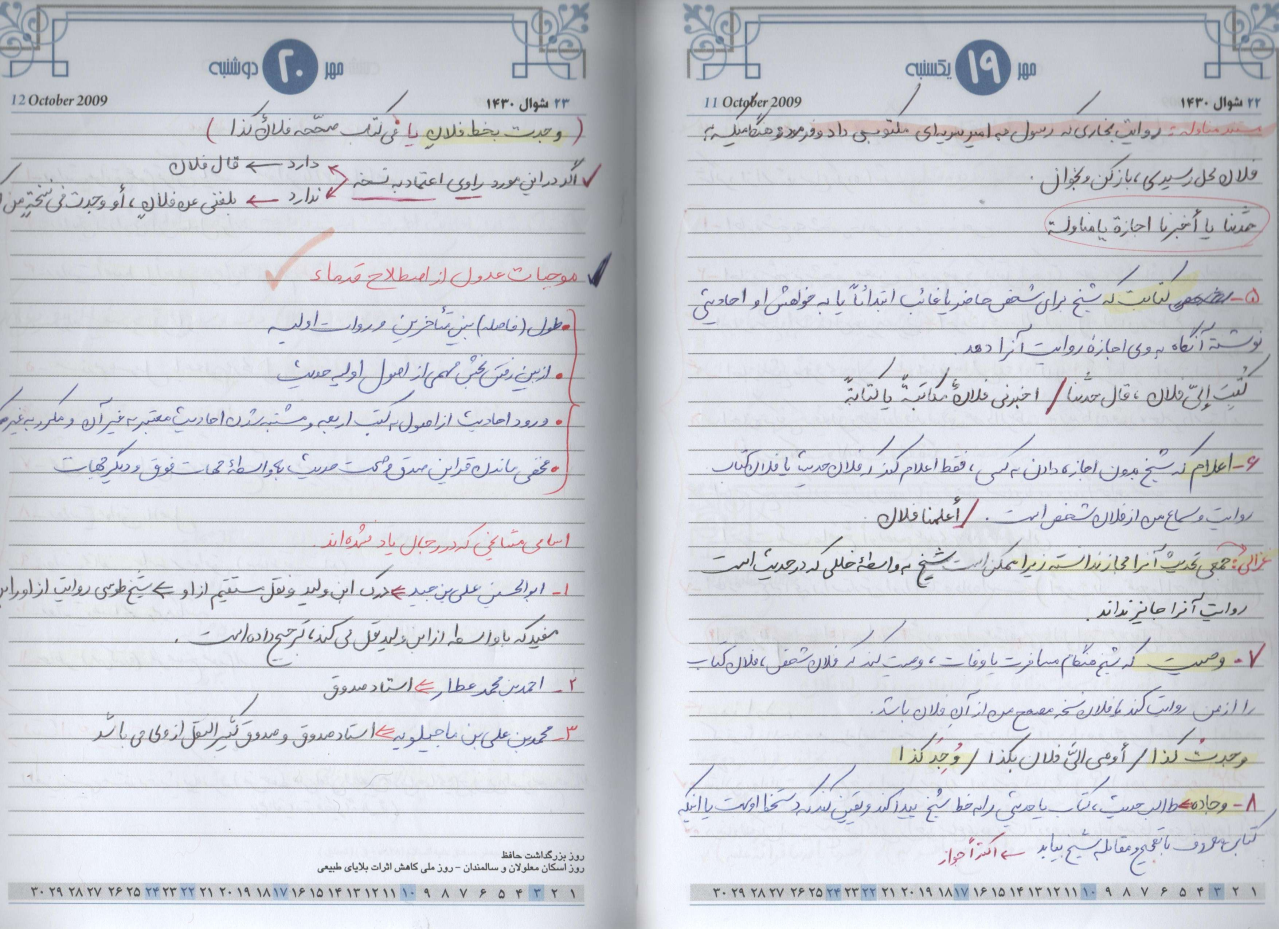 مهر ۱۹ یکشنبه
۲۲ شوال ۱۴۳۰
11 October 2009
مستند مناوله: روایت بخاری که رسول به امیر سریه‌ای مکتوبی داد و فرمود هنگامیکه به
فلان محل رسیدی، باز کن و بخوان.
حدّثنا یا أخبرنا اجازة یا مناولة
۵- کتابت که شیخ برای شخص حاضر یا غائب ابتدائاً یا به خواهش او احادیثی
نوشته آنگاه به وی اجازهٔ روایت آنرا دهد.
کُتِبَ إلیّ فلان، قال حدّثنا / اخبرنی فلانٌ مکاتبةً یا کتابةً
۶- اعلام که شیخ بدون اجازه دادن به کسی، فقط اعلام کند که فلان حدیث یا فلان کتاب
روایت و سماع من از فلان شخص است. / أعلمنا فلان
غزالی: جمعی تحدیث آنرا مجاز ندانسته زیرا ممکن است شیخ به واسطهٔ خللی که در حدیث است
روایت آنرا جایز نداند.
۷- وصیت که شیخ هنگام مسافرت یا وفات، وصیت کند که فلان شخص، فلان کتاب
را از من روایت کند یا فلان نسخه مصحح من از آن فلان باشد.
وجدتُ کذا / أوصی الیّ فلان بکذا / وُجِدَ کذا
۸- وجاده طالب حدیث، کتاب یا حدیثی را به خط شیخ پیدا کند و یقین کند که دستخط اوست یا اینکه
کتاب معروف با تصحیح و مقابله شیخ بیابد ← اکثر أجواز
۱ ۲ ۳ ۴ ۵ ۶ ۷ ۸ ۹ ۱۰ ۱۱ ۱۲ ۱۳ ۱۴ ۱۵ ۱۶ ۱۷ ۱۸ ۱۹ ۲۰ ۲۱ ۲۲ ۲۳ ۲۴ ۲۵ ۲۶ ۲۷ ۲۸ ۲۹ ۳۰
مهر ۲۰ دوشنبه
۲۳ شوال ۱۴۳۰
12 October 2009
( وجدت بخط فلانٍ یا فی کتاب صحّحه فلانٌ کذا )
اگر در این مورد راوی اعتماد به نسخه
دارد ← قال فلان
ندارد ← بلغنی عن فلانٍ، أو وجدت فی نسخةٍ من
موجبات عدول از اصطلاح قدماء
• طول (فاصله) بین متأخرین و روات اولیه
• از بین رفتن بخش مهمی از اصول اولیه حدیث
• ورود احادیث از اصول به کتب اربعه و مشتبه شدن احادیث معتبر به غیر آن و مکرر به غیر
• مخفی ماندن قراین صدق و صحت حدیث بواسطهٔ جهات فوق و دیگر جهات
اسامی مشایخی که در رجال یاد نشده‌اند.
۱- ابوالحسین علی بن جید ← درک ابن ولید و نقل مستقیم از او ← شیخ طوسی روایت از او را بر
مفید که با واسطه از ابن ولید نقل می کند، ترجیح داده است.
۲- احمد بن محمد عطار ← استاد صدوق
۳- محمد بن علی بن ماجیلویه ← استاد صدوق و صدوق کثیر النقل از وی می باشد
روز بزرگداشت حافظ
روز اسکان معلولان و سالمندان – روز ملی کاهش اثرات بلایای طبیعی
۱ ۲ ۳ ۴ ۵ ۶ ۷ ۸ ۹ ۱۰ ۱۱ ۱۲ ۱۳ ۱۴ ۱۵ ۱۶ ۱۷ ۱۸ ۱۹ ۲۰ ۲۱ ۲۲ ۲۳ ۲۴ ۲۵ ۲۶ ۲۷ ۲۸ ۲۹ ۳۰